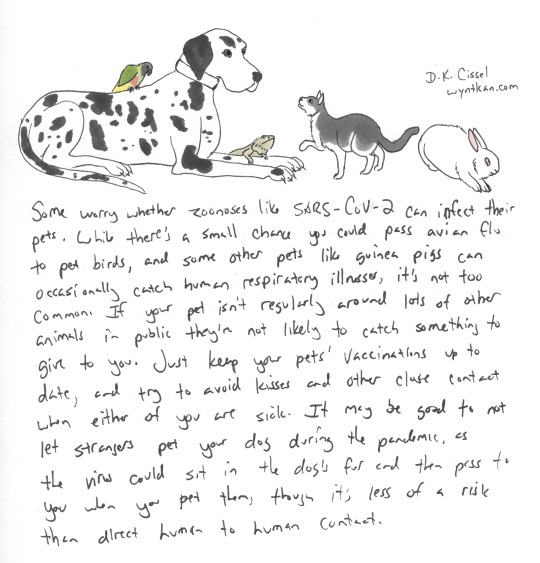 D.K. Cissel
wyntkan.com
Some worry whether zoonoses like SARS-CoV-2 can infect their
pets. While there's a small chance you could pass avian flu
to pet birds, and some other pets like guinea pigs can
occasionally catch human respiratory illnesses, it's not too
common. If your pet isn't regularly around lots of other
animals in public they're not likely to catch something to
give to you. Just keep your pets' vaccinations up to
date, and try to avoid kisses and other close contact
when either of you are sick. It may be good to not
let strangers pet your dog during the pandemic, as
the virus could sit in the dog's fur and then pass to
you when you pet them, though it's less of a risk
than direct human to human contact.